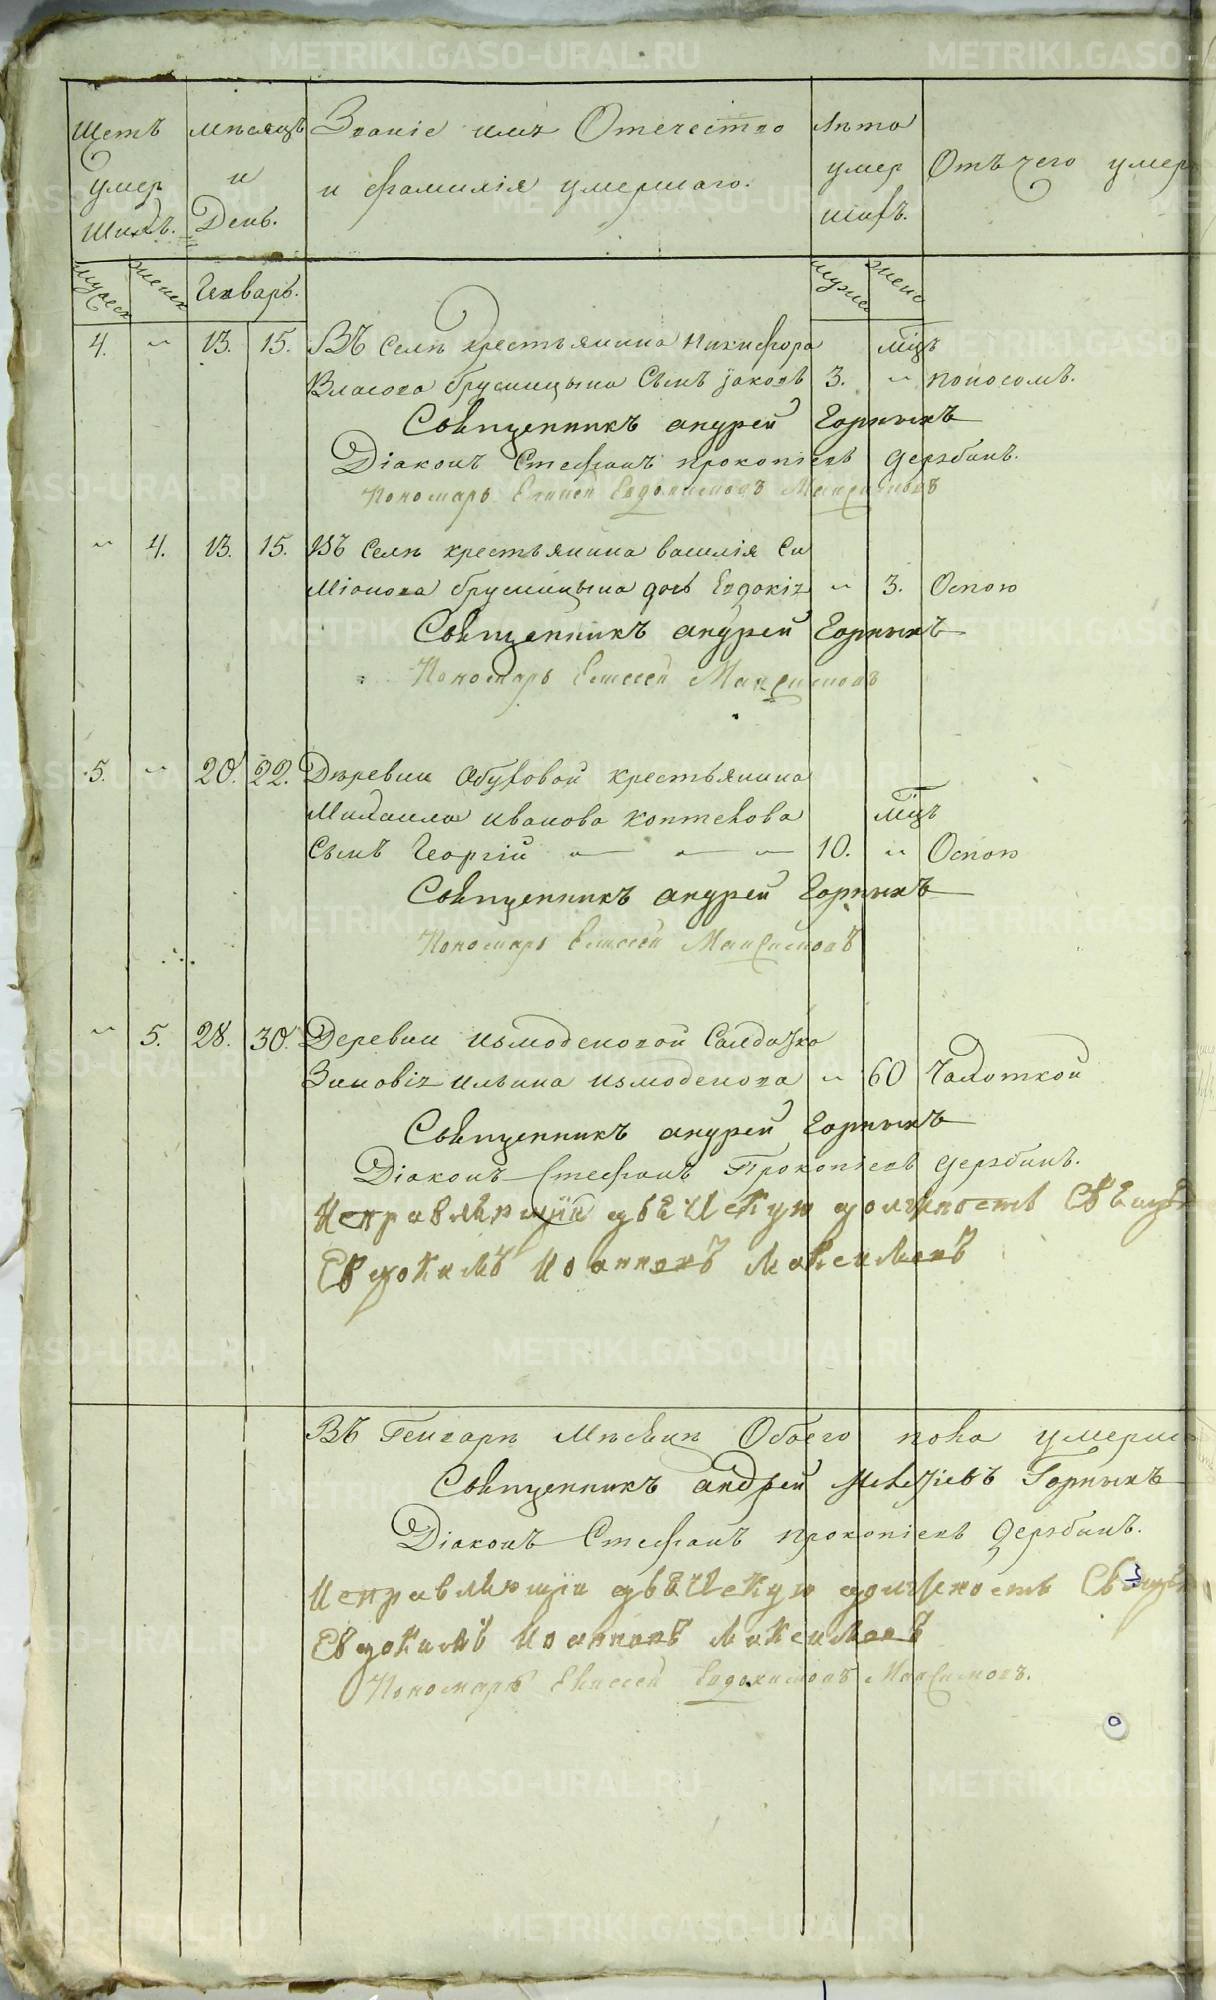 Щетъ умер шихъ.
мѣсяцъ и День.
Званіе имя Отечество
и фамилія умершаго.
Лѣта умер шихъ.
Отъ чего умер
мужеск
женск
Генварь.
мужес
женс
4. 13. 15. Въ Селѣ крестьянина Никифора мцъ
Власова брусницына Сынъ яковъ 3. поносомъ.
Священникъ андрей Горныхъ
Діаконъ Стефанъ прокопіевъ дерябинъ.
Пономарь Елисей Евдокимовъ Максимовъ
4. 13. 15. Въ Селѣ крестьянина василія Си
міонова брусницына дочь Евдокія 3. Оспою
Священникъ андрей Горныхъ
Пономарь Елисей Максимовъ
5. 20. 22. Деревни Обуховой крестьянина
Михаила иванова коптелова мцъ
Сынъ Георгій 10. Оспою
Священникъ андрей Горныхъ
Пономарь Елисей Максимовъ
5. 28. 30. Деревни измоденовой Салдатка
Зиновія ильина измоденова 60 Чахоткой
Священникъ андрей Горныхъ
Діаконъ Стефанъ Прокопіевъ дерябинъ.
Исправляющій дьячискую должность
Евдокимъ Иоанновъ Максимовъ
Въ Генварѣ мѣсяцѣ Обоего пола умерш
Священникъ андрей Горныхъ
Діаконъ Стефанъ прокопіевъ дерябинъ.
Исправляющій дьячискую должность
Евдокимъ Иоанновъ Максимовъ
Пономарь Елисей Евдокимовъ Максимовъ.
METRIKI.GASO-URAL.RU